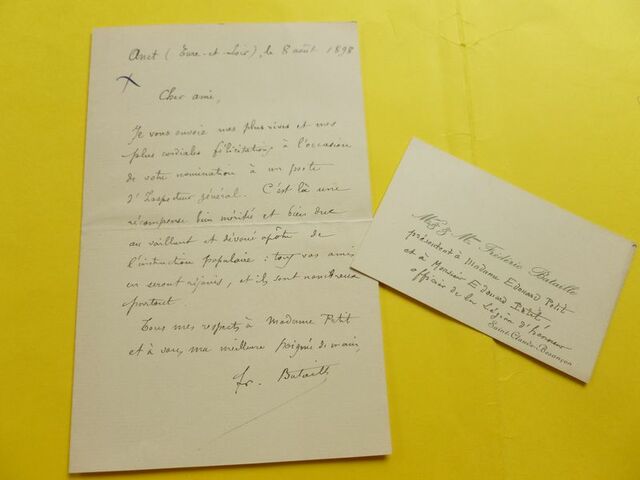 Anet (Eure-et-Loir), le 8 août 1898
Cher ami,
Je vous envoie mes plus vives et mes
plus cordiales félicitations à l'occasion
de votre nomination à un poste
d'Inspecteur général. C'est là une
récompense bien méritée et bien due
au vaillant et dévoué apôtre de
l'instruction populaire : tous vos amis
en seront réjouis, et ils sont nombreux
partout.
Tous mes respects à Madame Petit
et à vous, ma meilleure poignée de main,
Fr. Bataille
M. & Me Frédéric Bataille
présentent à Madame Edouard Petit
et à Monsieur Edouard Petit,
officier de la Légion d'honneur
Saint-Claude-Besançon